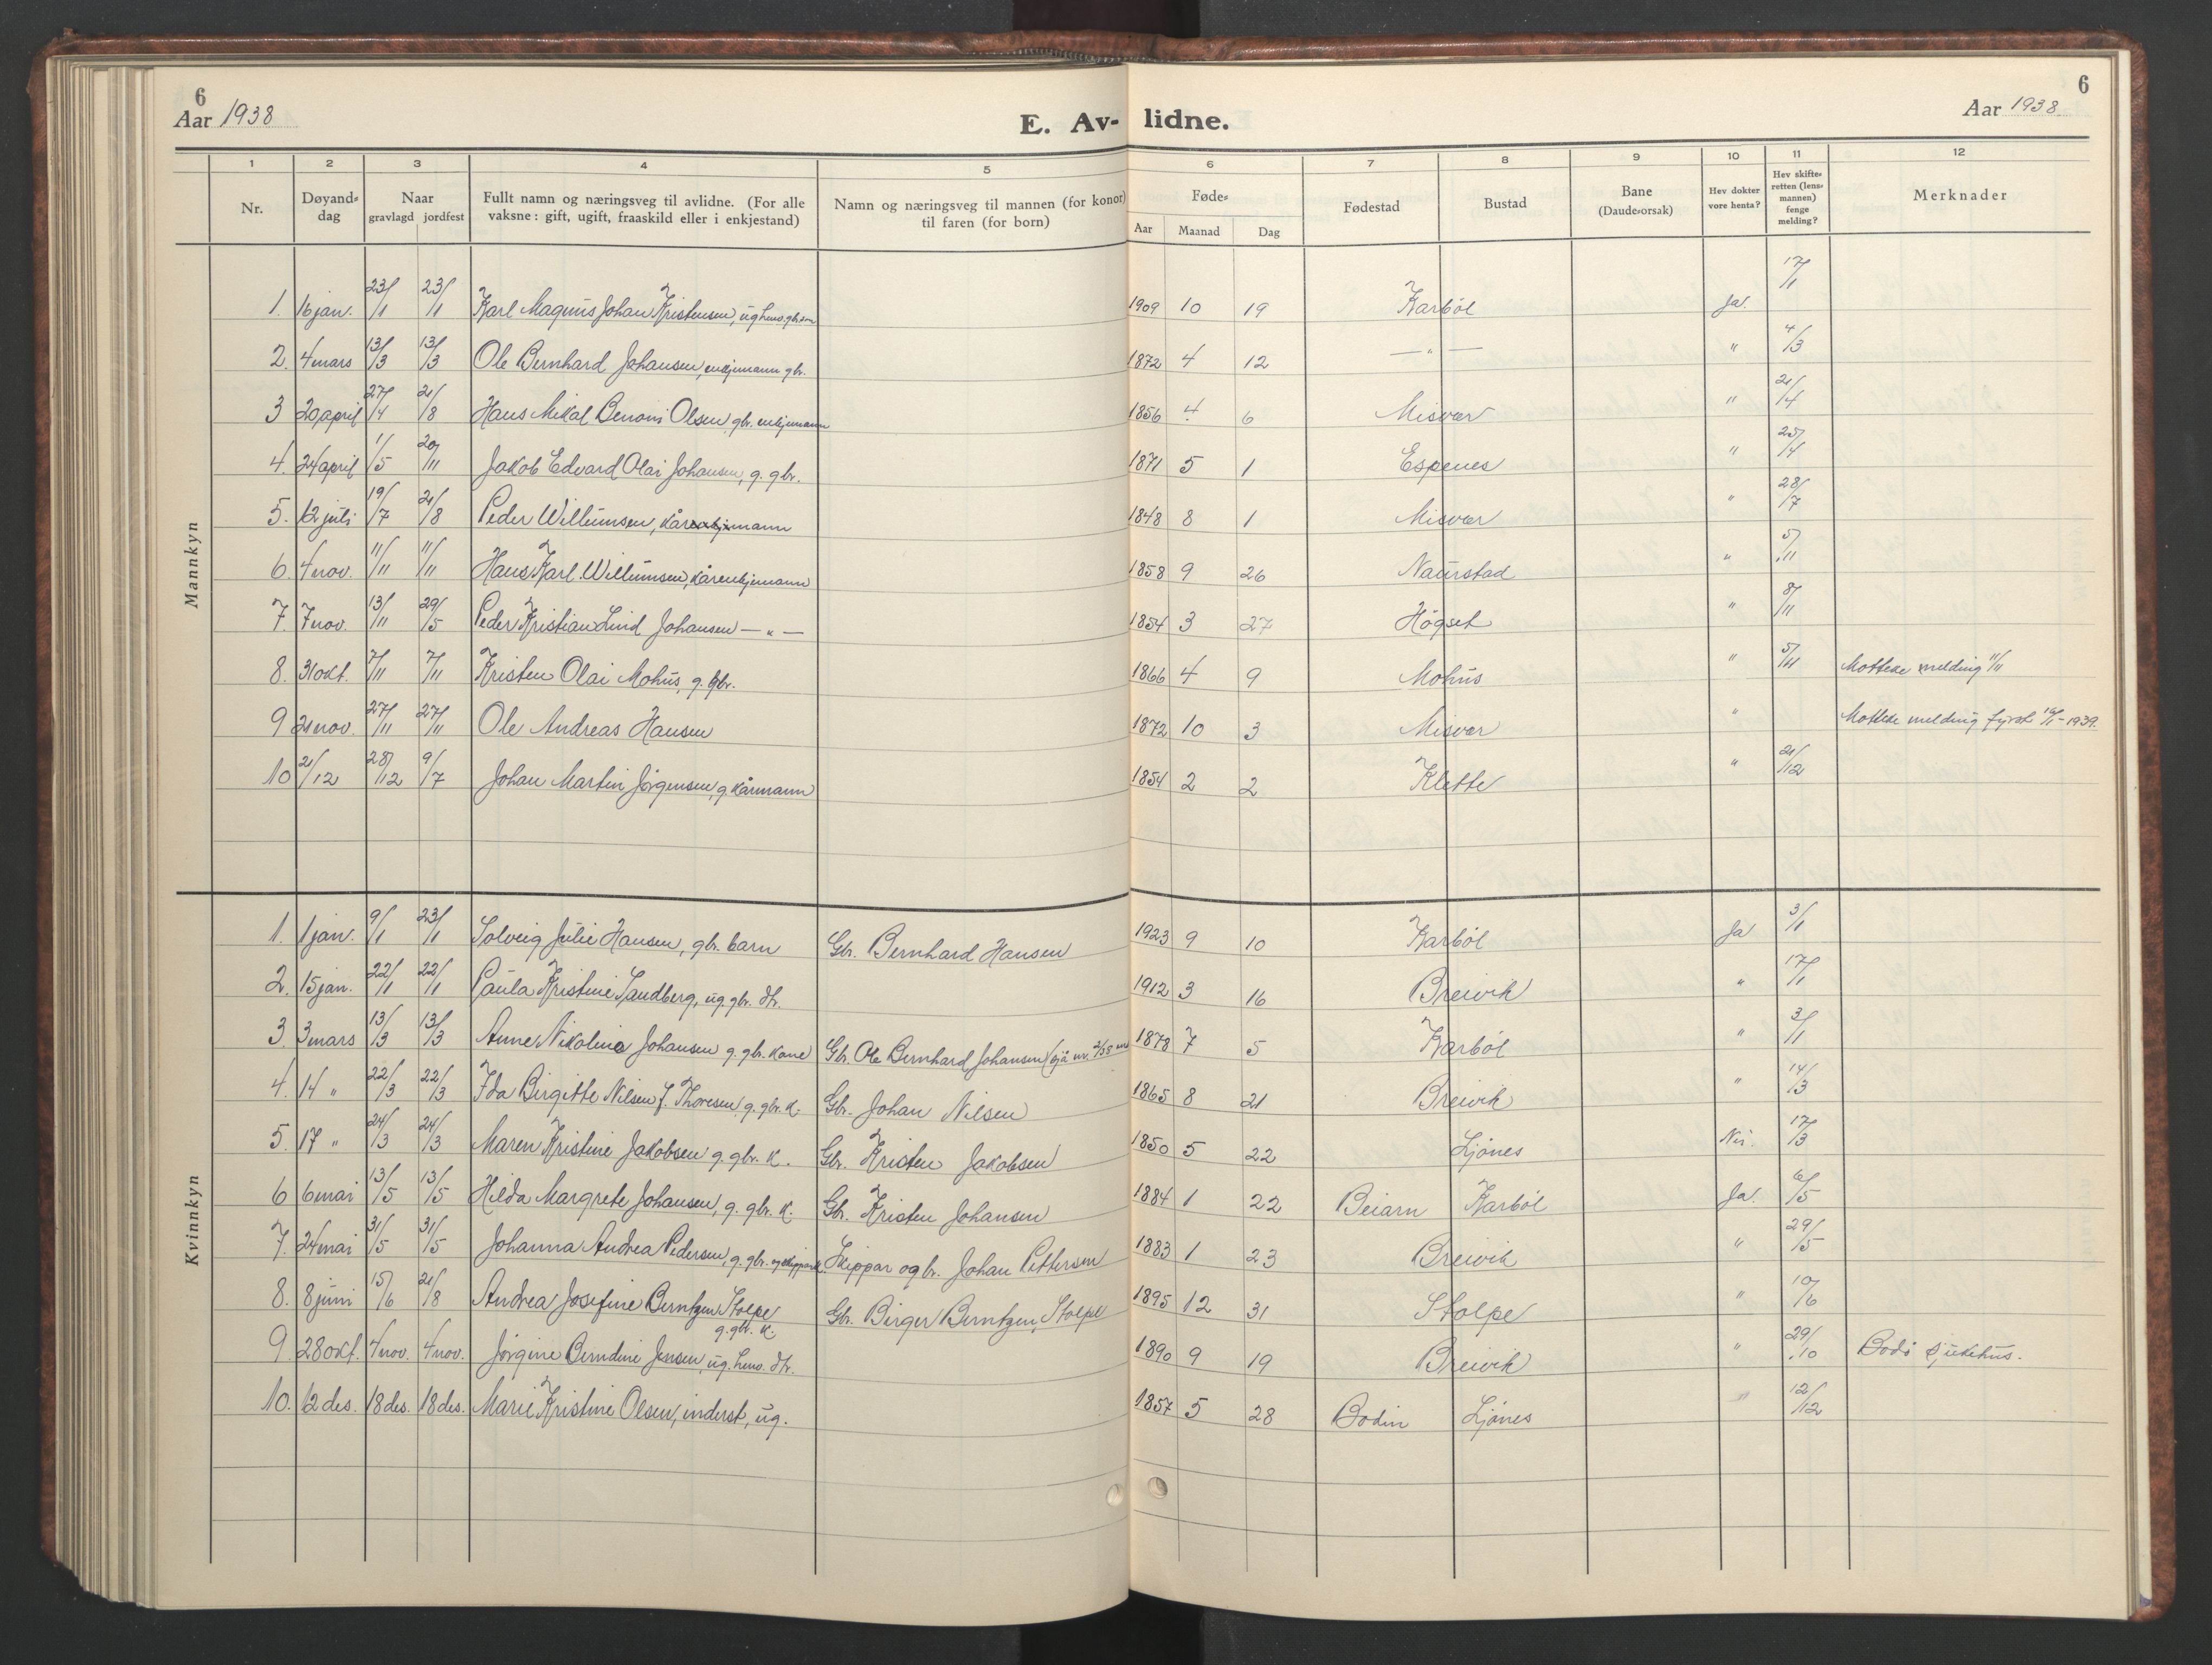 6
Aar 1938
E. Av-lidne.
6
Aar 1938
1 2 3 4 5 6 7 8 9 10 11 12
Nr.
Døyand-dag
Naar gravlagd jordfest
Fullt namn og næringsveg til avlidne. (For alle vaksne: gift, ugift, fraaskild eller i enkjestand)
Namn og næringsveg til mannen (for konor) til faren (for born)
Føde- Aar Maanad Dag
Fødestad
Bustad
Bane (Daude-orsak)
Hev dokter vore henta?
Hev skifte-retten (lens-mannen) fenge melding?
Merknader
Mannkyn
1. 16 jan. 23/1 23/1 Karl Magnus Johan Kristensen, ug. 1909 10 19 Karbøl Ja. 17/1
2. 4 mars 13/3 13/3 Ole Bernhard Johansen, enkjemann gbr. 1872 4 12 — " — " 4/3
3 20 april 27/4 21/8 Hans Mikal Benoni Olsen gbr. enkjemann 1856 4 6 Misvær " 21/4
4. 24 april 1/5 20/11 Jakob Edvard Olai Johansen, g. gbr. 1871 5 1 Espenes " 25/4
5. 12 juli 19/7 21/8 Peder Willumsen, kårmann 1848 8 1 Misvær " 28/7
6. 4 nov. 11/11 11/11 Hans Karl Willumsen, kårenkjemann 1858 9 26 Naurstad " 5/11
7. 7 nov. 13/11 29/5 Peder Kristian Lind Johansen — " — 1854 3 27 Högset " 8/11
8. 31 okt. 7/11 7/11 Kristen Olai Mohus, g. gbr. 1866 4 9 Mohus " 5/11 Motteke melding 11/11
9 21 nov. 27/11 27/11 Ole Andreas Hansen 1872 10 3 Misvær " Motteke melding fyrst 16/1-1939.
10 21/12 28/12 9/7 Johan Martin Jörgensen, g. kårmann 1854 2 2 Klette " 21/12
Kvinnkyn
1. 1 jan. 9/1 23/1 Solveig Julie Hansen, gbr. barn Gbr. Bernhard Hansen 1923 9 10 Karbøl Ja 3/1
2. 15 jan. 22/1 22/1 Paula Kristine Sandberg, ug. gbr. dtr. 1912 3 16 Breivik " 17/1
3. 3 mars 13/3 13/3 Anne Nikoline Johansen g. gbr. kone Gbr. Ole Bernhard Johansen (sjå nr. 2/38 1878 7 5 Karbøl " 3/1
4. 14 " 22/3 22/3 Ida Birgitte Nilsen f. Thoresen g. gbr. k. Gbr. Johan Nilsen 1865 8 21 Breivik " 14/3
5. 17 " 24/3 24/3 Maren Kristine Jakobsen g. gbr. k. Gbr. Kristen Jakobsen 1850 5 22 Ljönes Nei. 17/3
6 6 mai 13/5 13/5 Hilda Margrete Johansen, g. gbr. k. Gbr. Kristen Johansen 1884 1 22 Beiarn Karbøl Ja. 6/5
7. 24 mai 31/5 31/5 Johanna Andrea Pedersen, g. gbr. og skippark. Skippar og br. Johan Pettersen 1883 1 23 Breivik " 29/5
8. 8 juni 15/6 21/8 Andrea Josefine Berntzen Stolpe g. gbr. k. Gbr. Birger Berntzen, Stolpe 1895 12 31 Stolpe " 10/6
9. 28 okt. 4 nov. 4 nov. Jörgine Berndine Jensen, ug. dtr. 1890 9 19 Breivik " 29/10 Bodö sjukehus.
10. 12 des. 18 des. 18 des. Marie Kristine Olsen, inderst, ug. 1857 5 28 Bodin Ljönes " 12/12